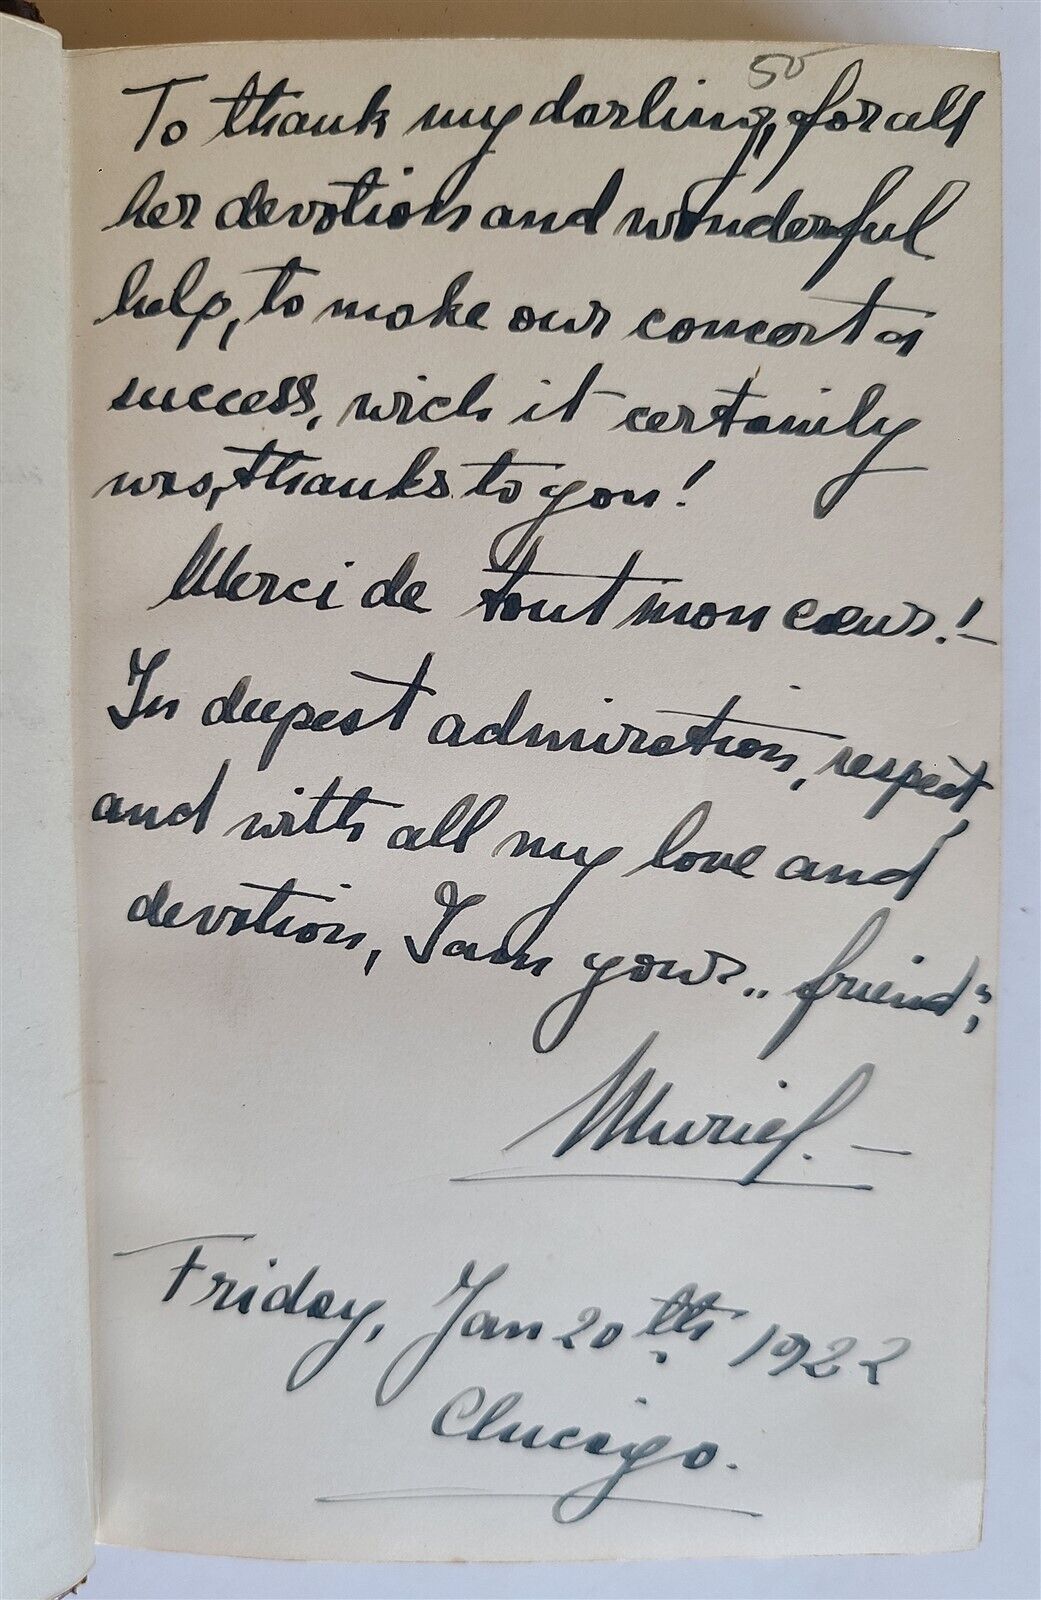 50
To thank my darling, for all
her devotion and wonderful
help, to make our concert a
success, wich it certainly
was, thanks to you!
Merci de tout mon cœur! -
In deepest admiration, respect
and with all my love and
devotion, I am your.. friend;
Muriel. -
Friday, Jan 20th 1922
Chicago.